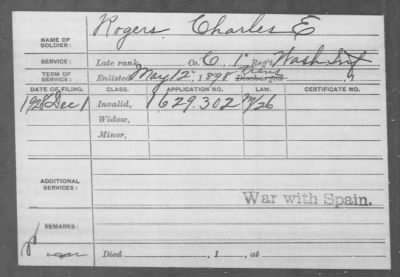 NAME OF SOLDIER: Rogers, Charles E
SERVICE: Late rank, Co. C, 1" Reg't Wash Inf
TERM OF SERVICE: Enlisted May 12, 1898 Discharged
DATE OF FILING. CLASS. APPLICATION NO. LAW. CERTIFICATE NO.
1928 Dec 1 Invalid, 1629.302 M/26
Widow,
Minor,
ADDITIONAL SERVICES:
War with Spain.
REMARKS:
Died , 1 , at